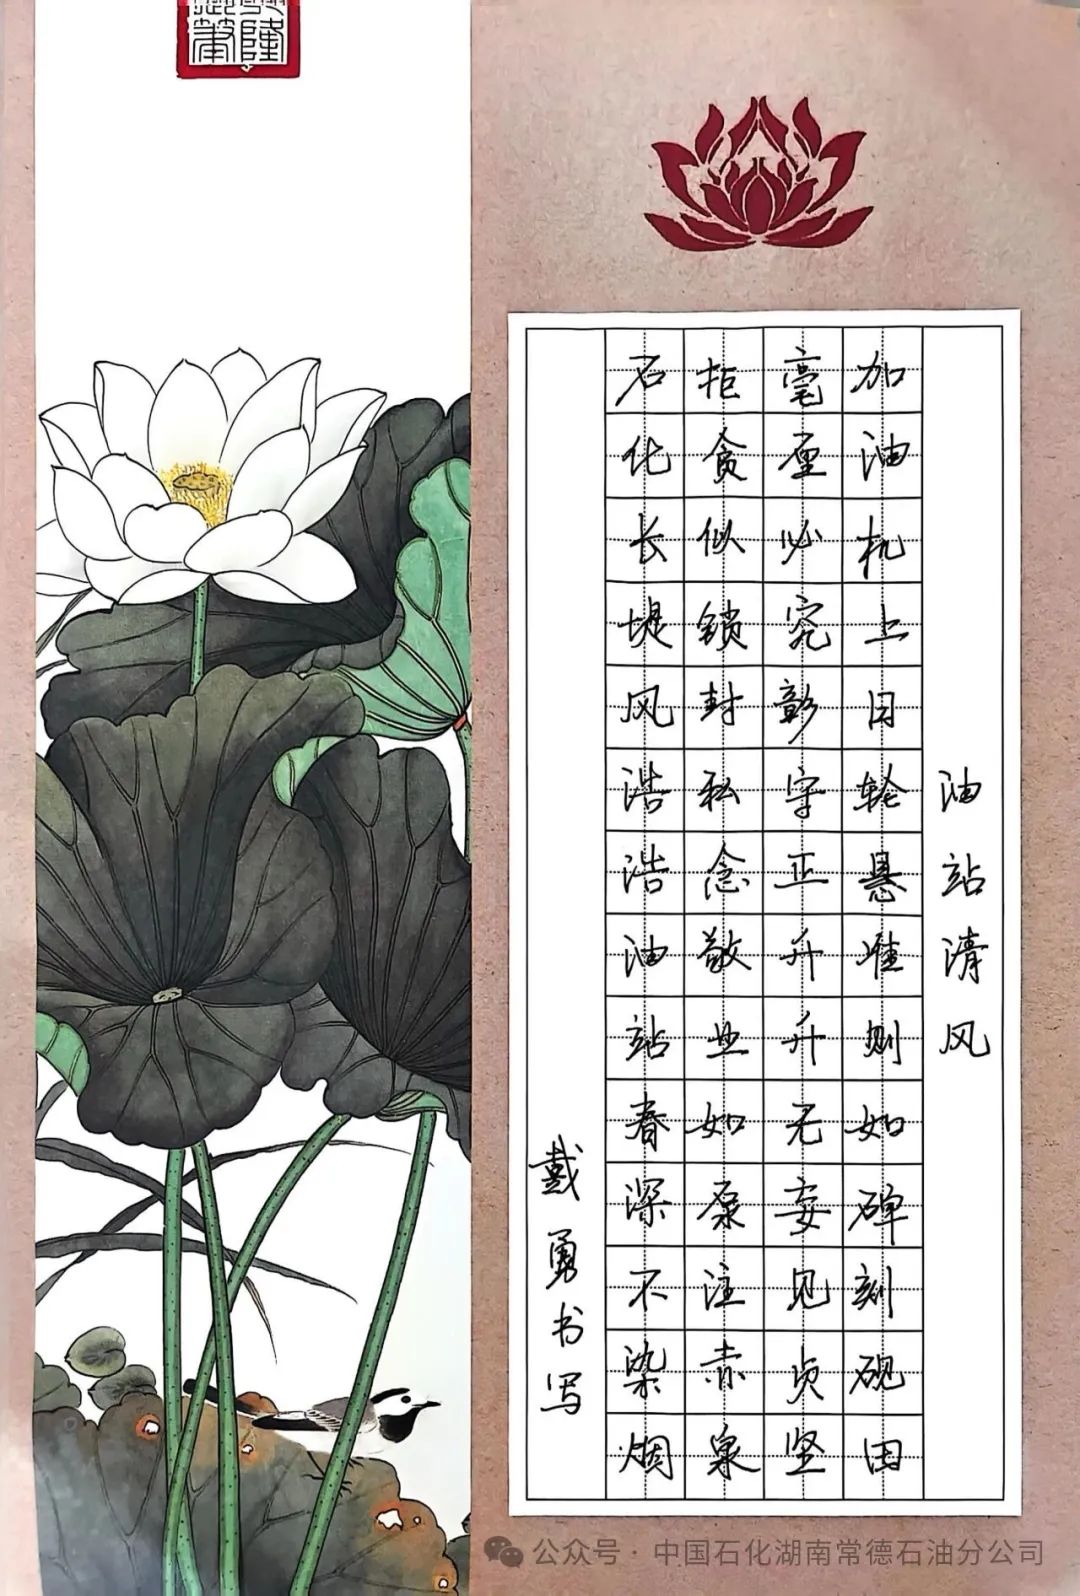 油站清风
加油机上日轮悬准则如碑刻砚田
毫厘必究彰守正升升无妄见贞坚
拒贪似锁封私念敬业如泵注赤泉
石化长堤风浩浩油站春深不染烟
戴勇书写
公众号·中国石化湖南常德石油分公司